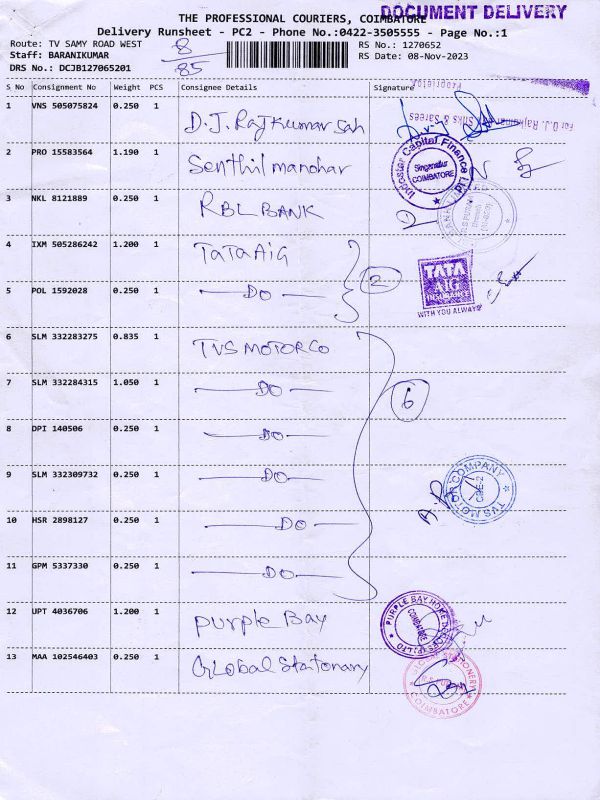 DOCUMENT DELIVERY
THE PROFESSIONAL COURIERS, COIMBATORE
Delivery Runsheet - PC2 - Phone No.:0422-3505555 - Page No.:1
Route: TV SAMY ROAD WEST
Staff: BARANIKUMAR
DRS No.: DCJB127065201
8
85
RS No.: 1270652
RS Date: 08-Nov-2023
S No Consignment No Weight PCS Consignee Details Signature
Proprietor
For D.J. Rajkumar Silks & Sarees
1 VNS 505075824 0.250 1 D.J. Rajkumar sah
2 PRO 15583564 1.190 1 Senthil manohar
Indostar Capital Finance Ltd
Singanallur
COIMBATORE
3 NKL 8121889 0.250 1 RBL BANK
4 IXM 505286242 1.200 1 TATA AIG
2
TATA
AIG
INSURANCE
WITH YOU ALWAYS
5 POL 1592028 0.250 1 DO
6 SLM 332283275 0.835 1 TVS MOTOR CO
7 SLM 332284315 1.050 1 DO
6
8 DPI 140506 0.250 1 DO
9 SLM 332309732 0.250 1 DO
TVS MOTOR COMPANY
CBE-2
10 HSR 2898127 0.250 1 DO
11 GPM 5337330 0.250 1 DO
12 UPT 4036706 1.200 1 Purple Bay
PURPLE BAY HOME DECORS (P) LTD
COIMBATORE
13 MAA 102546403 0.250 1 Global Stationary
STATIONERY
COIMBATORE